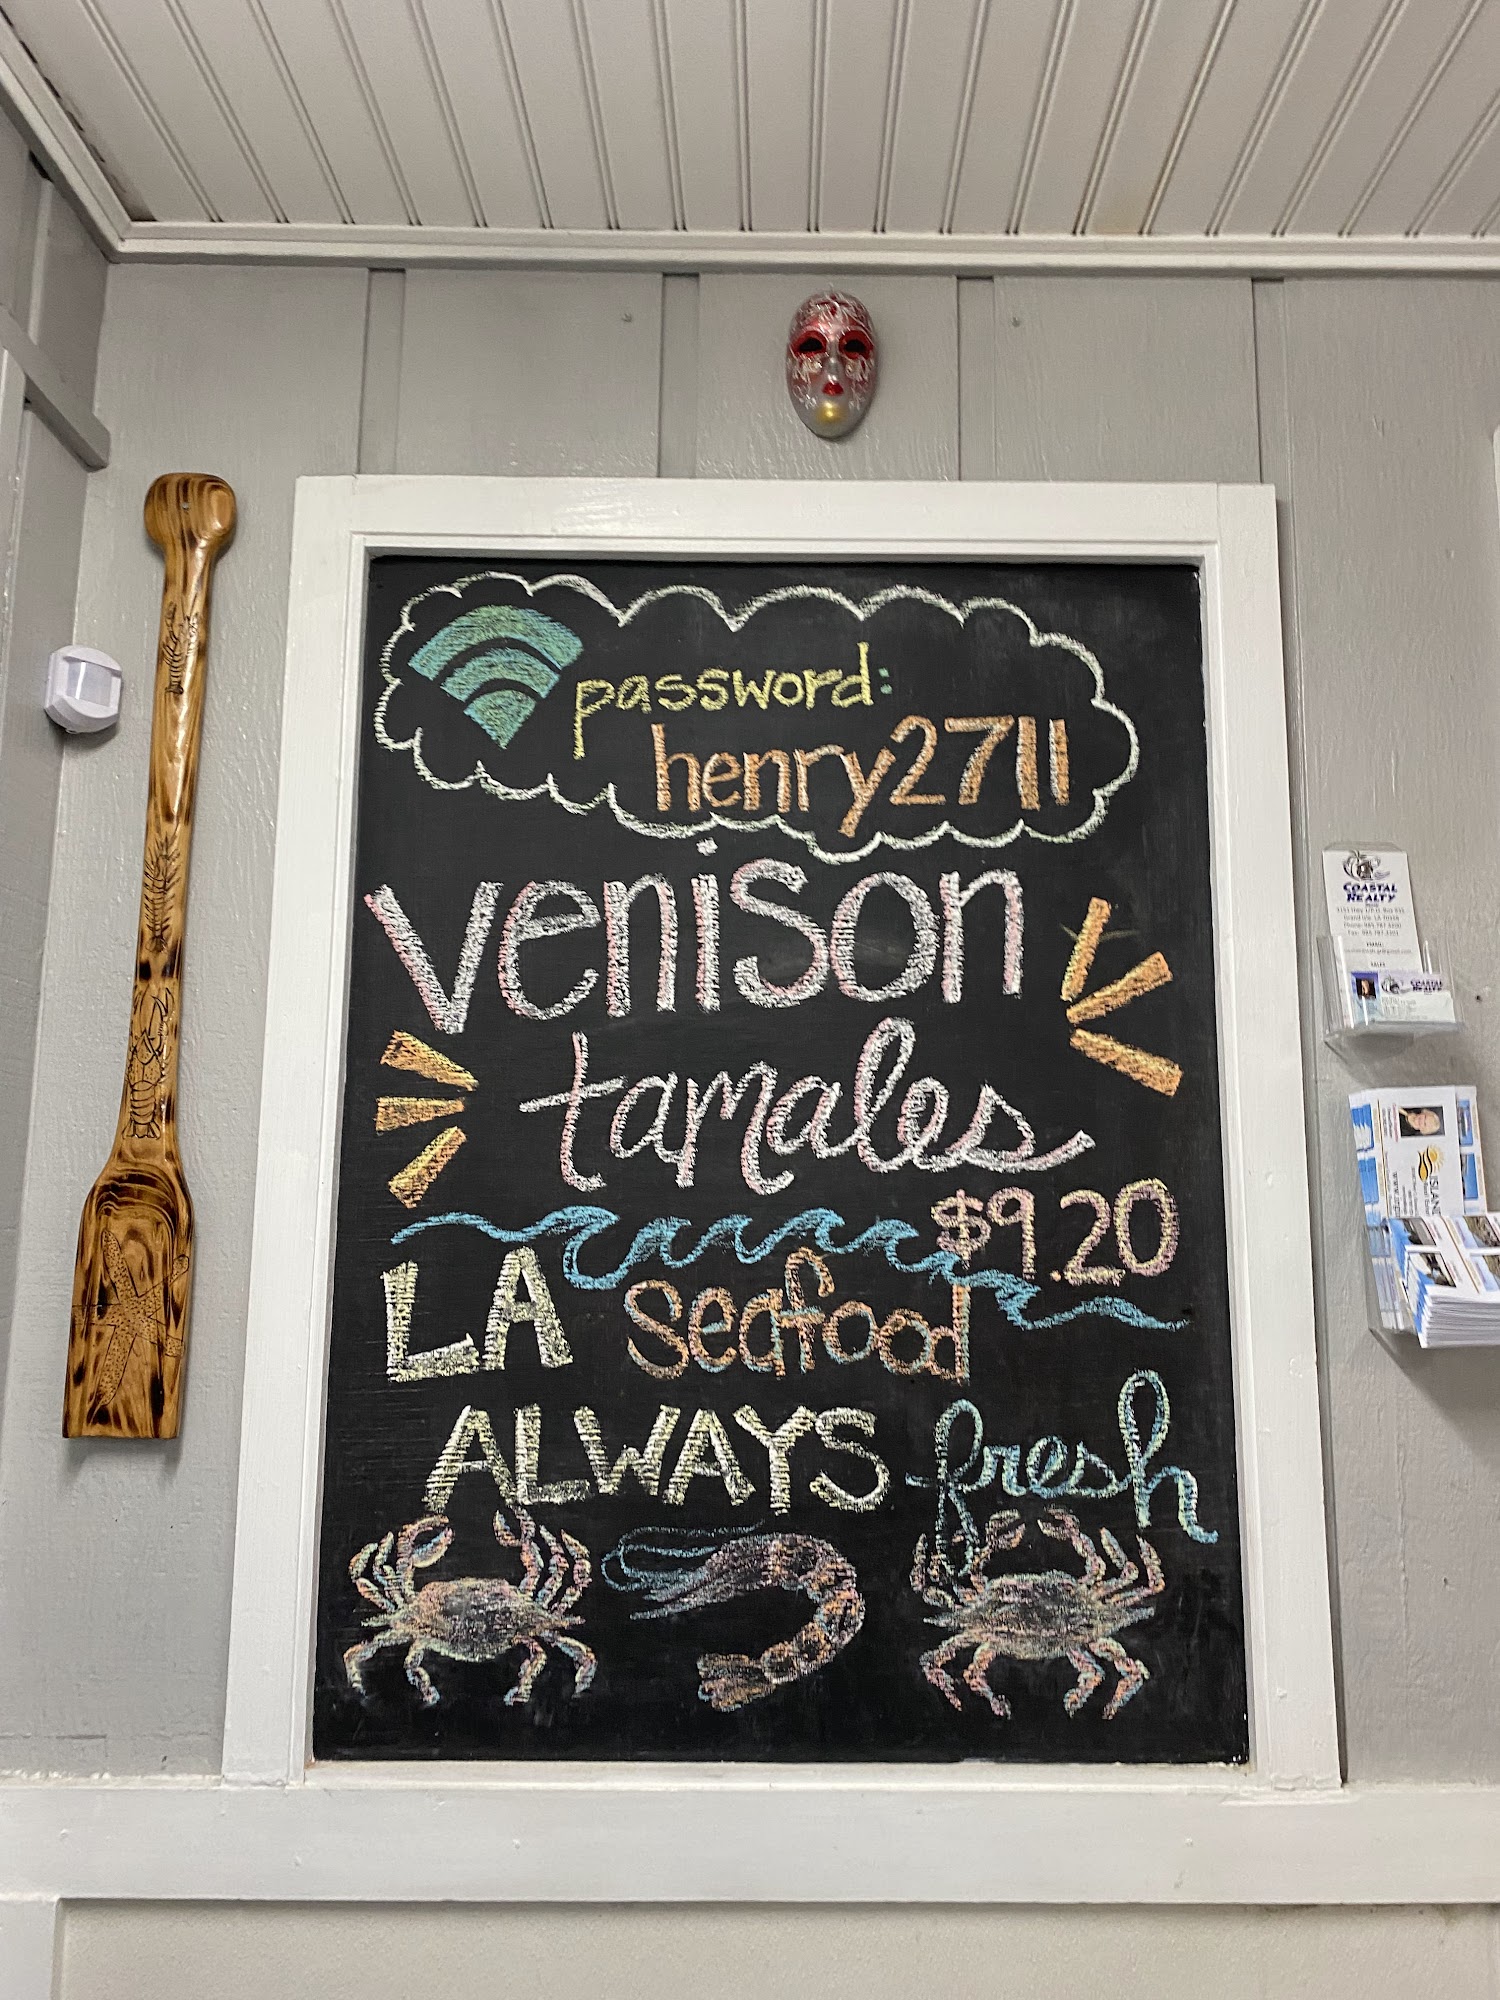 password:
henry2711
venison
tamales
$9.20
LA seafood
ALWAYS fresh
COASTAL
REALTY
COASTAL
REALTY
ISLAND